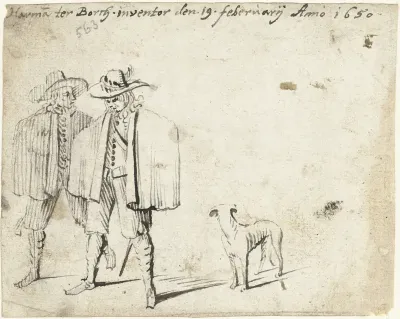 Harmã ter Borch. inventor den. 19. feberuarij Anno 1650.
563